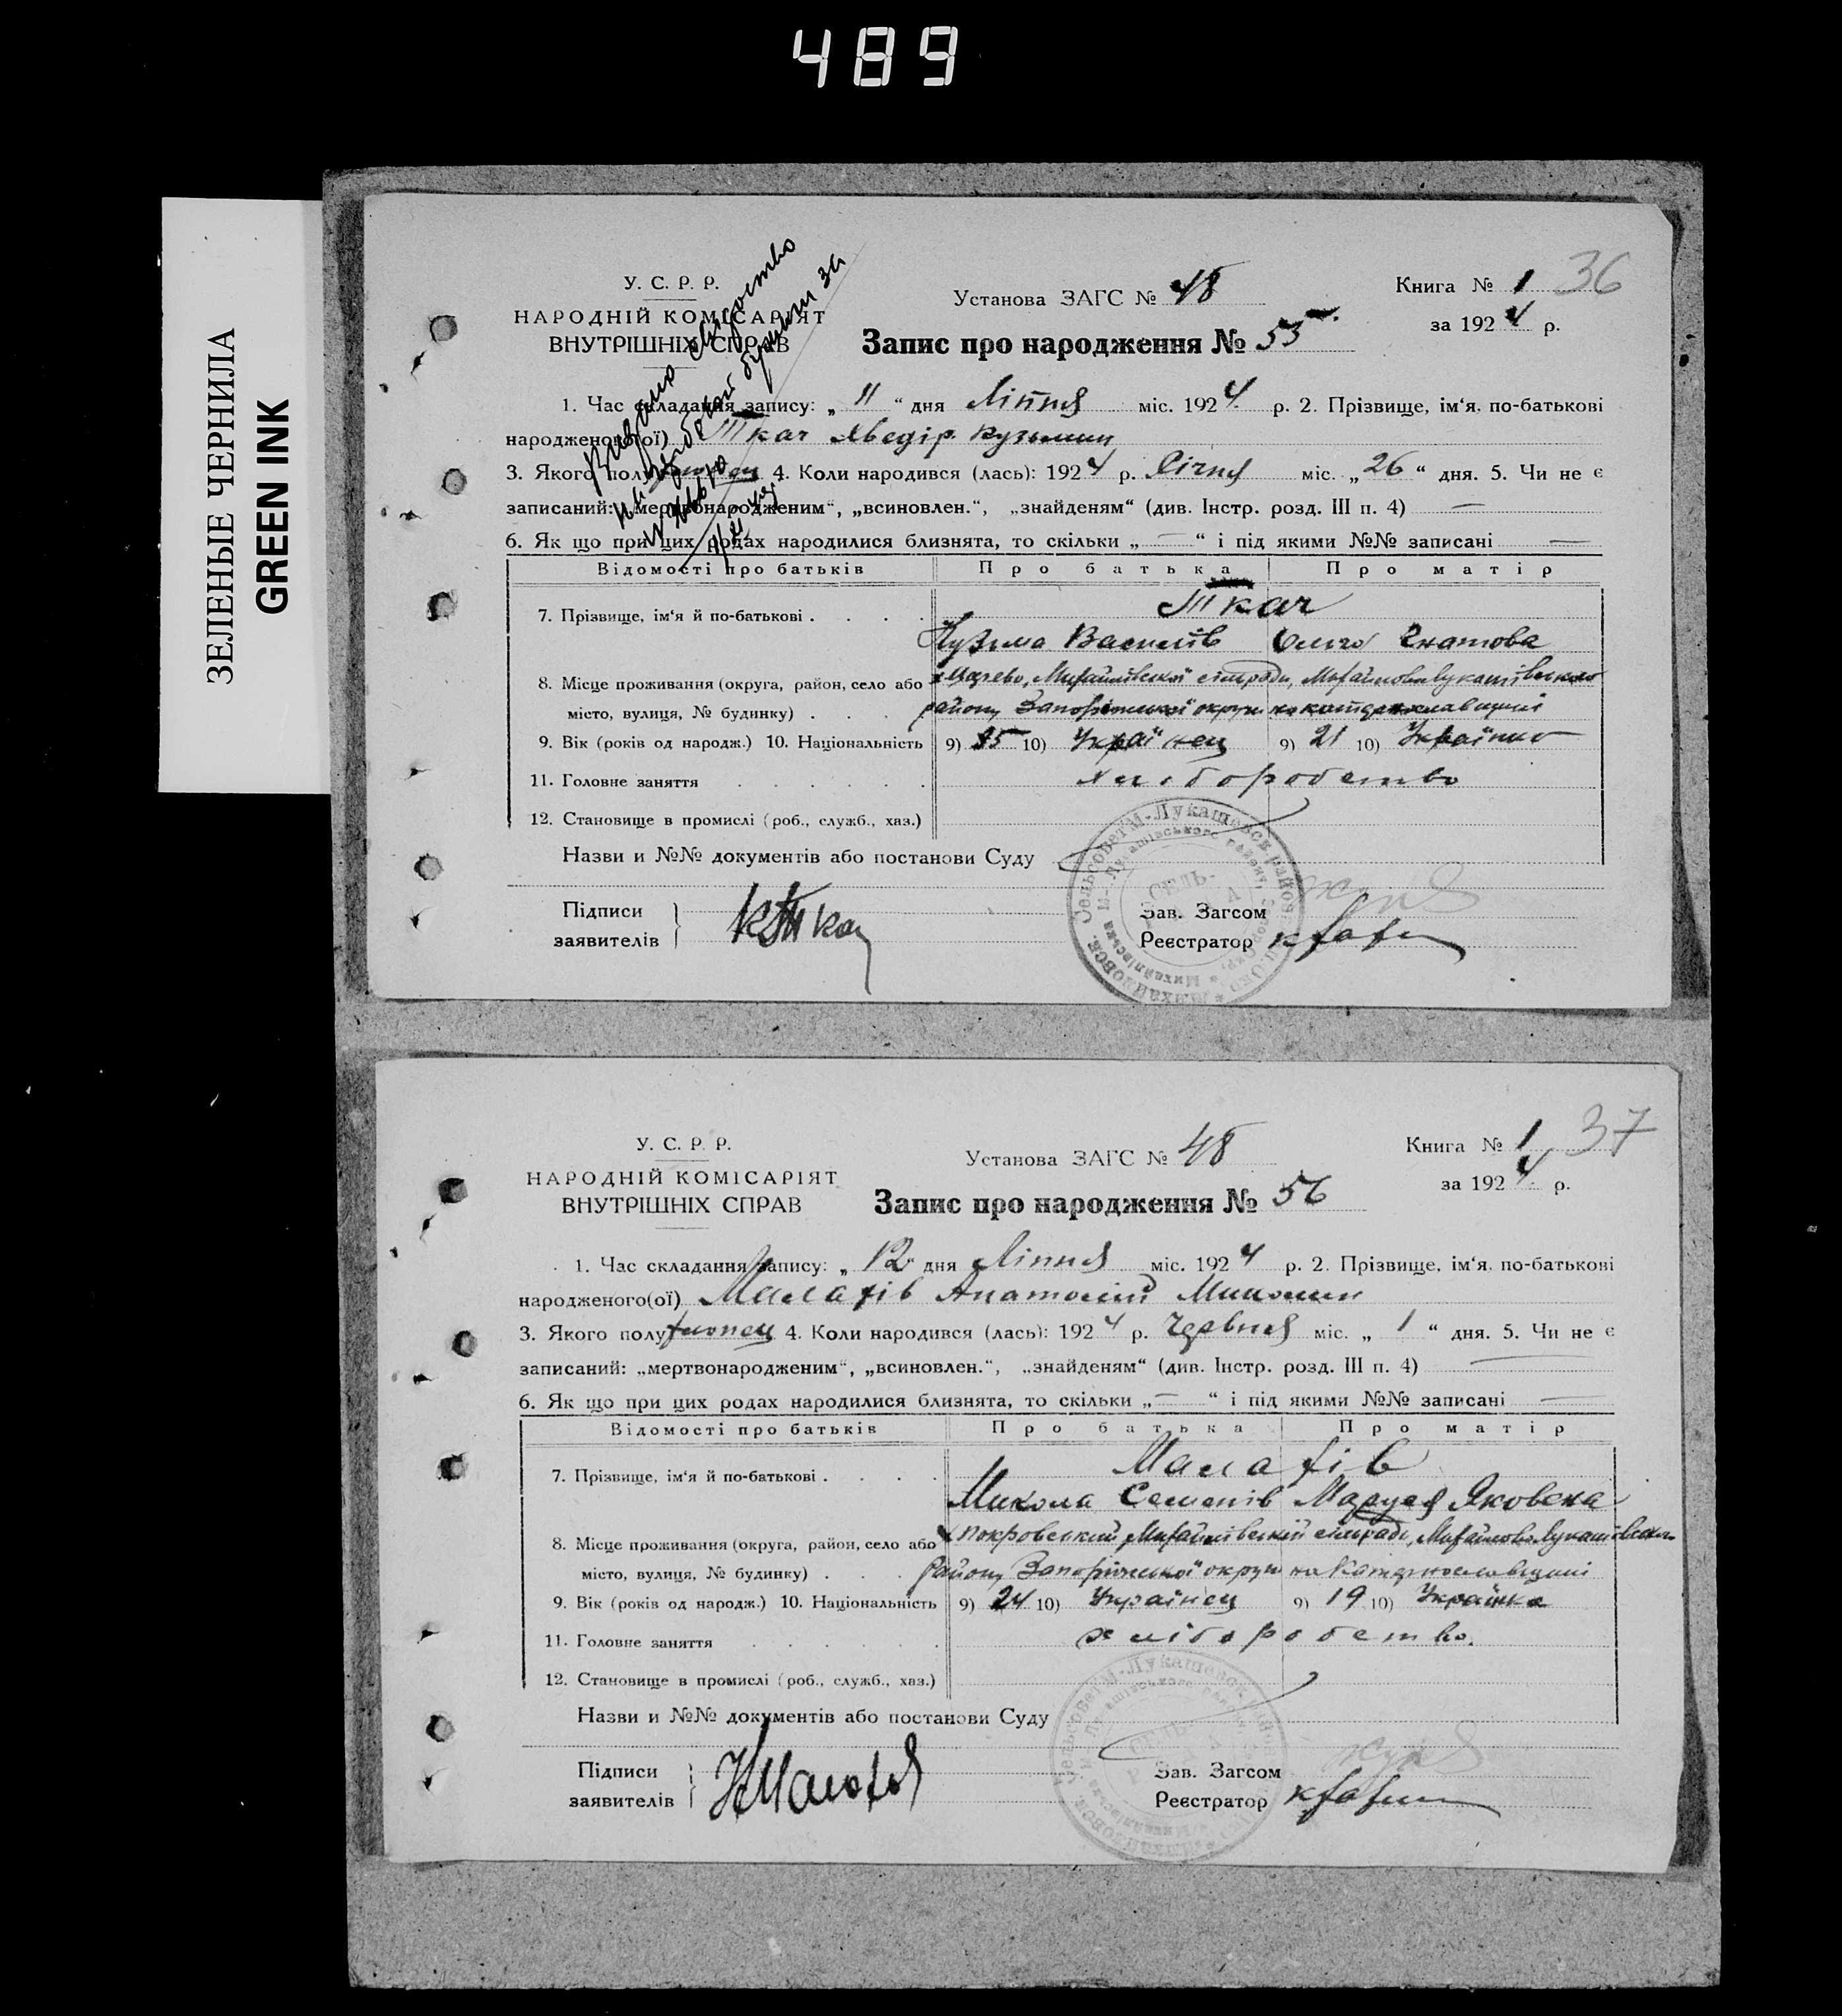 489
ЗЕЛЕНЫЕ ЧЕРНИЛА
GREEN INK
У. С. Р. Р.
НАРОДНІЙ КОМІСАРІЯТ
ВНУТРІШНІХ СПРАВ
Установа ЗАГС № 48
Книга № 1 36
за 1924 р.
Запис про народження № 55
1. Час складання запису: „ 11 “ дня Ліпня міс. 1924 р. 2. Прізвище, ім‘я, по-батькові
народженого(ої) Ткач Хведір Кузьмин
3. Якого полу хлопец 4. Коли народився (лась): 1924 р. Січня міс. „ 26 “ дня. 5. Чи не є
записаний: „мертвонародженим“, „всиновлен.“, „знайденям“ (див. Інстр. розд. III п. 4) —
6. Як що при цих родах народилися близнята, то скільки „ — “ і під якими №№ записані —
Відомості про батьків Про батька Про матір
7. Прізвище, ім‘я й по-батькові . . . . Ткач
Кузьма Васильів Ольга Гнатова
8. Місце проживання (округа, район, село або х. Михайлівської сільради, Михайлово Лукашівського
місто, вулиця, № будинку) . . . району Запоріжської округи на катеринославщині
9. Вік (років од народж.) 10. Національність 9) 35 10) Українец 9) 21 10) Українка
11. Головне заняття . . . . . . хліборобство
12. Становище в промислі (роб., служб., хаз.)
Назви и №№ документів або постанови Суду
Підписи
заявителів КТкач
Зав. Загсом
Реєстратор
СЕЛЬ-
У. С. Р. Р.
НАРОДНІЙ КОМІСАРІЯТ
ВНУТРІШНІХ СПРАВ
Установа ЗАГС № 48
Книга № 1 37
за 1924 р.
Запис про народження № 56
1. Час складання запису: „ 12 “ дня Ліпня міс. 1924 р. 2. Прізвище, ім‘я, по-батькові
народженого(ої) Малахів Анатолій Миколин
3. Якого полу хлопец 4. Коли народився (лась): 1924 р. Червня міс. „ 1 “ дня. 5. Чи не є
записаний: „мертвонародженим“, „всиновлен.“, „знайденям“ (див. Інстр. розд. III п. 4) —
6. Як що при цих родах народилися близнята, то скільки „ — “ і під якими №№ записані —
Відомості про батьків Про батька Про матір
7. Прізвище, ім‘я й по-батькові . . . . Малахів
Микола Семенів Маруся Яковена
8. Місце проживання (округа, район, село або х Покровський Михайлівській сільради, Михайлово Лукашівського
місто, вулиця, № будинку) . . . району Запоріжської округи на Катеринославщині
9. Вік (років од народж.) 10. Національність 9) 24 10) Українец 9) 19 10) Українка
11. Головне заняття . . . . . . хліборобство.
12. Становище в промислі (роб., служб., хаз.)
Назви и №№ документів або постанови Суду
Підписи
заявителів НМалахів
Зав. Загсом
Реєстратор